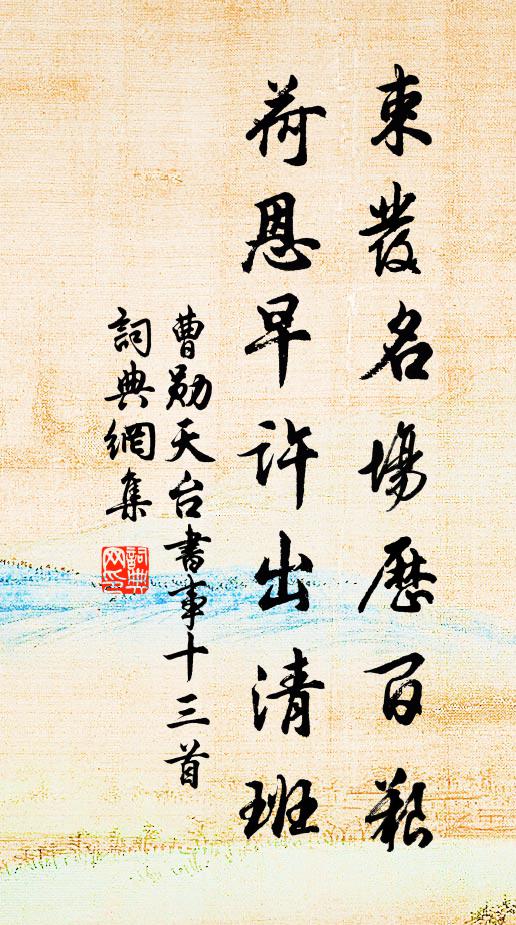 束發名場歷百艱
荷恩早許出清班
曹勛天台書事十三首
詞典網集
詞典网